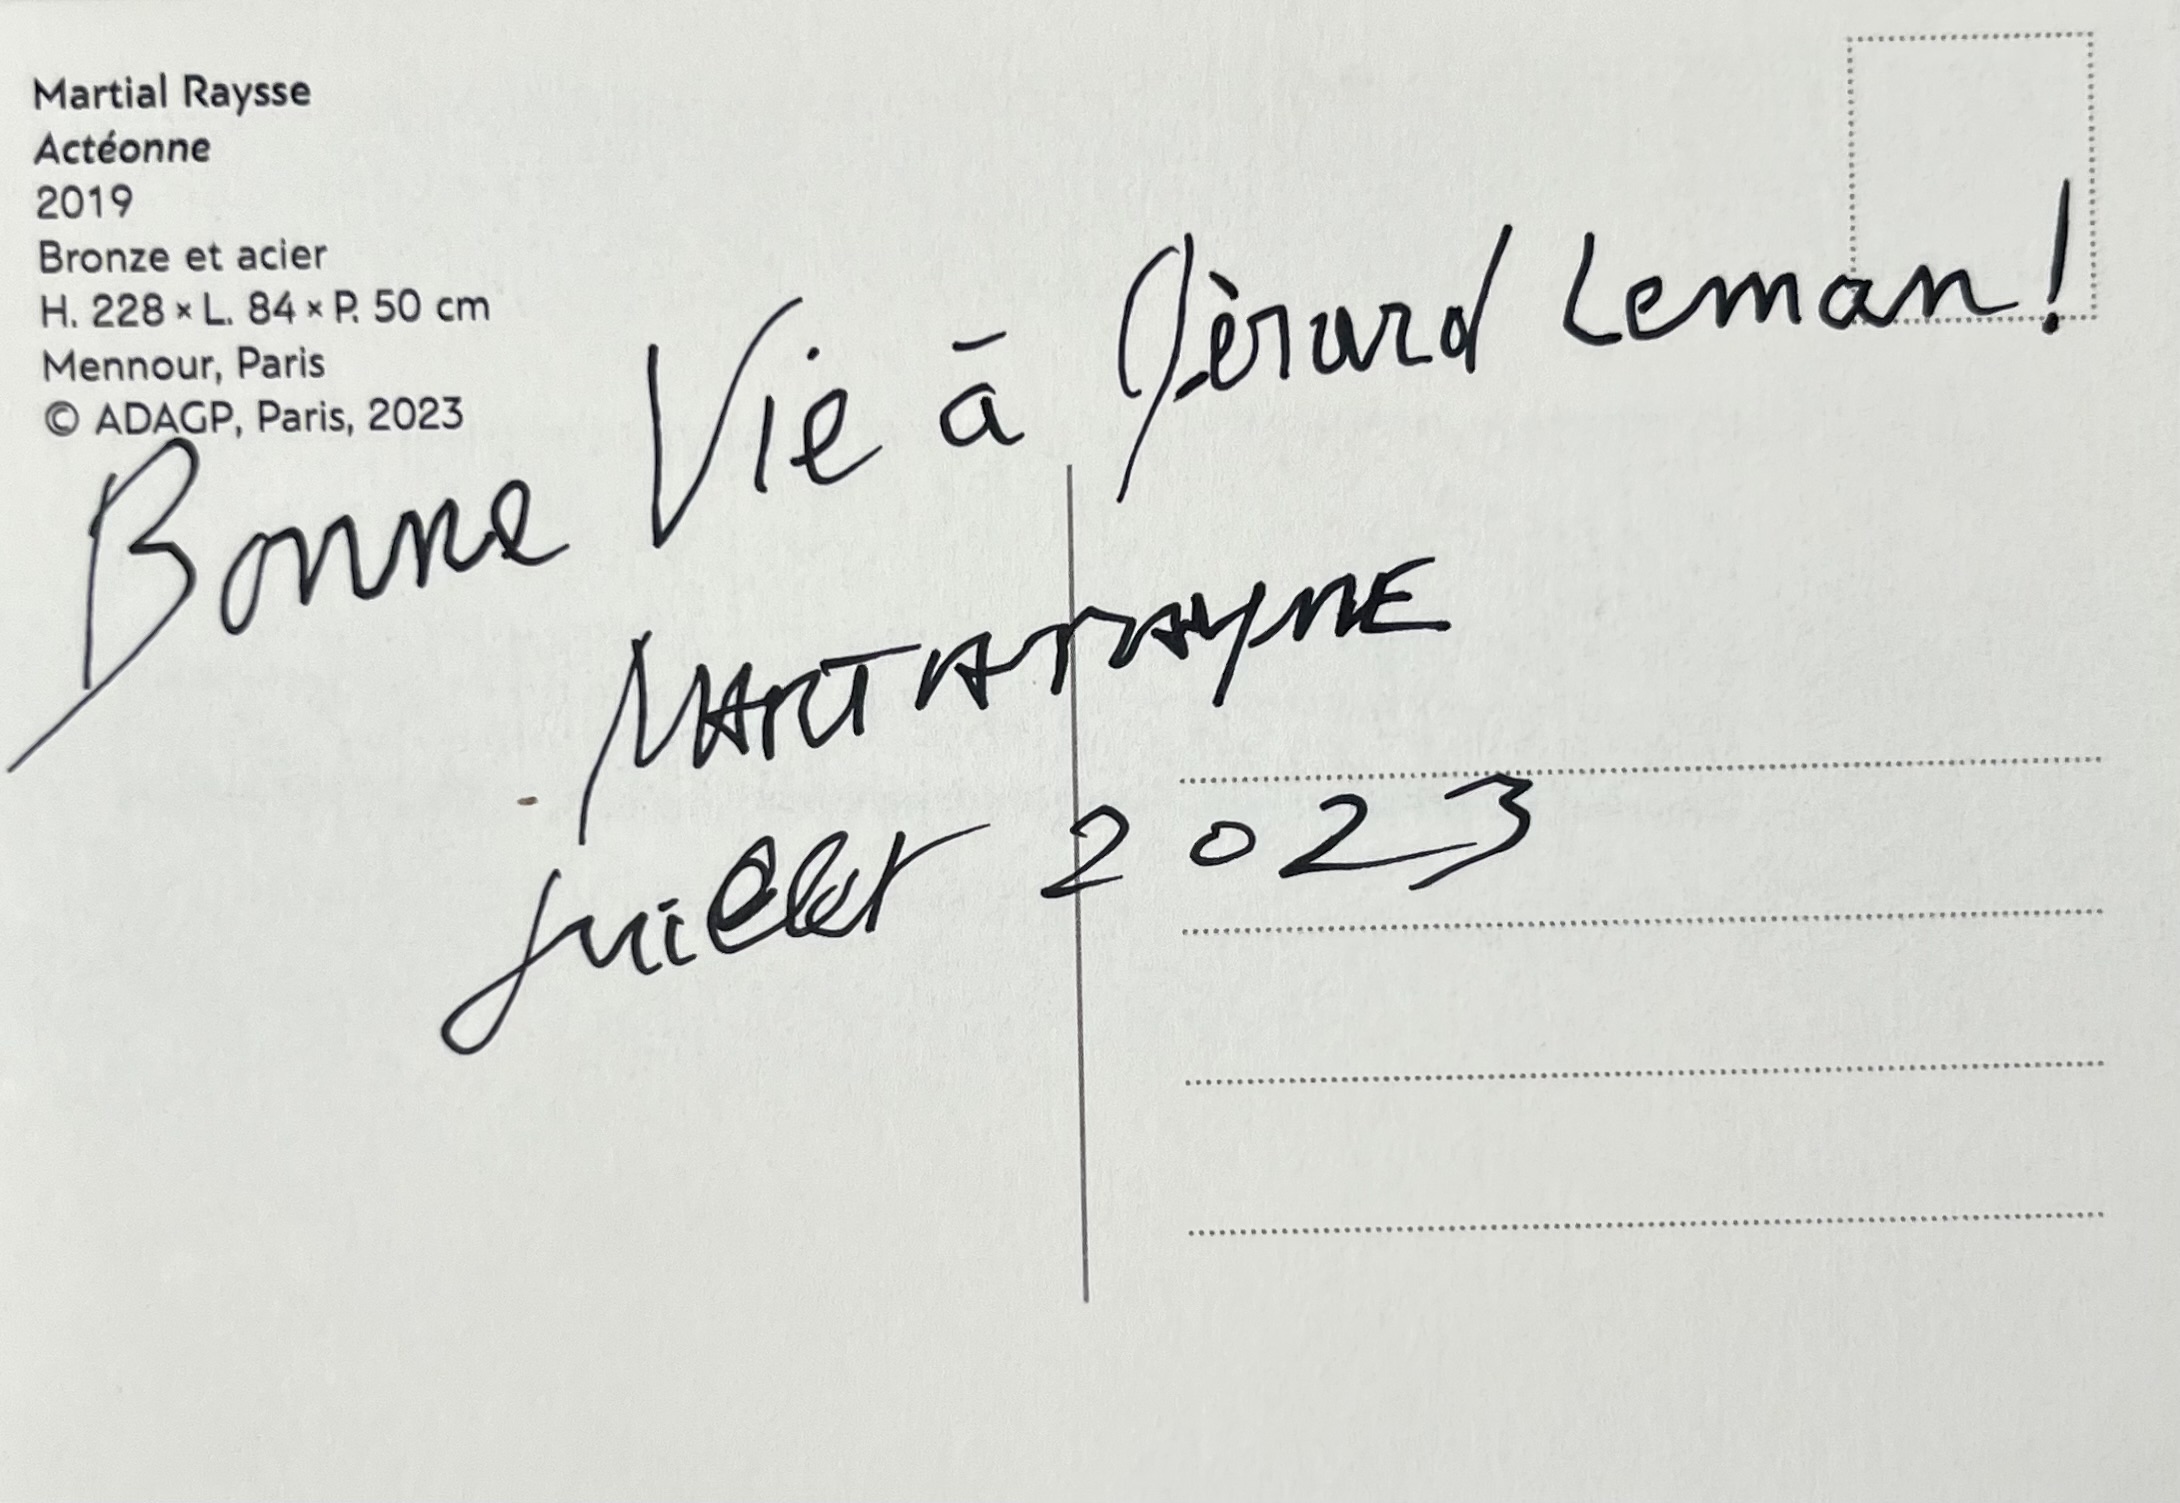 Martial Raysse
Actéonne
2019
Bronze et acier
H. 228 × L. 84 × P. 50 cm
Mennour, Paris
© ADAGP, Paris, 2023
Bonne Vie à Gérard Leman !
juillet 2023